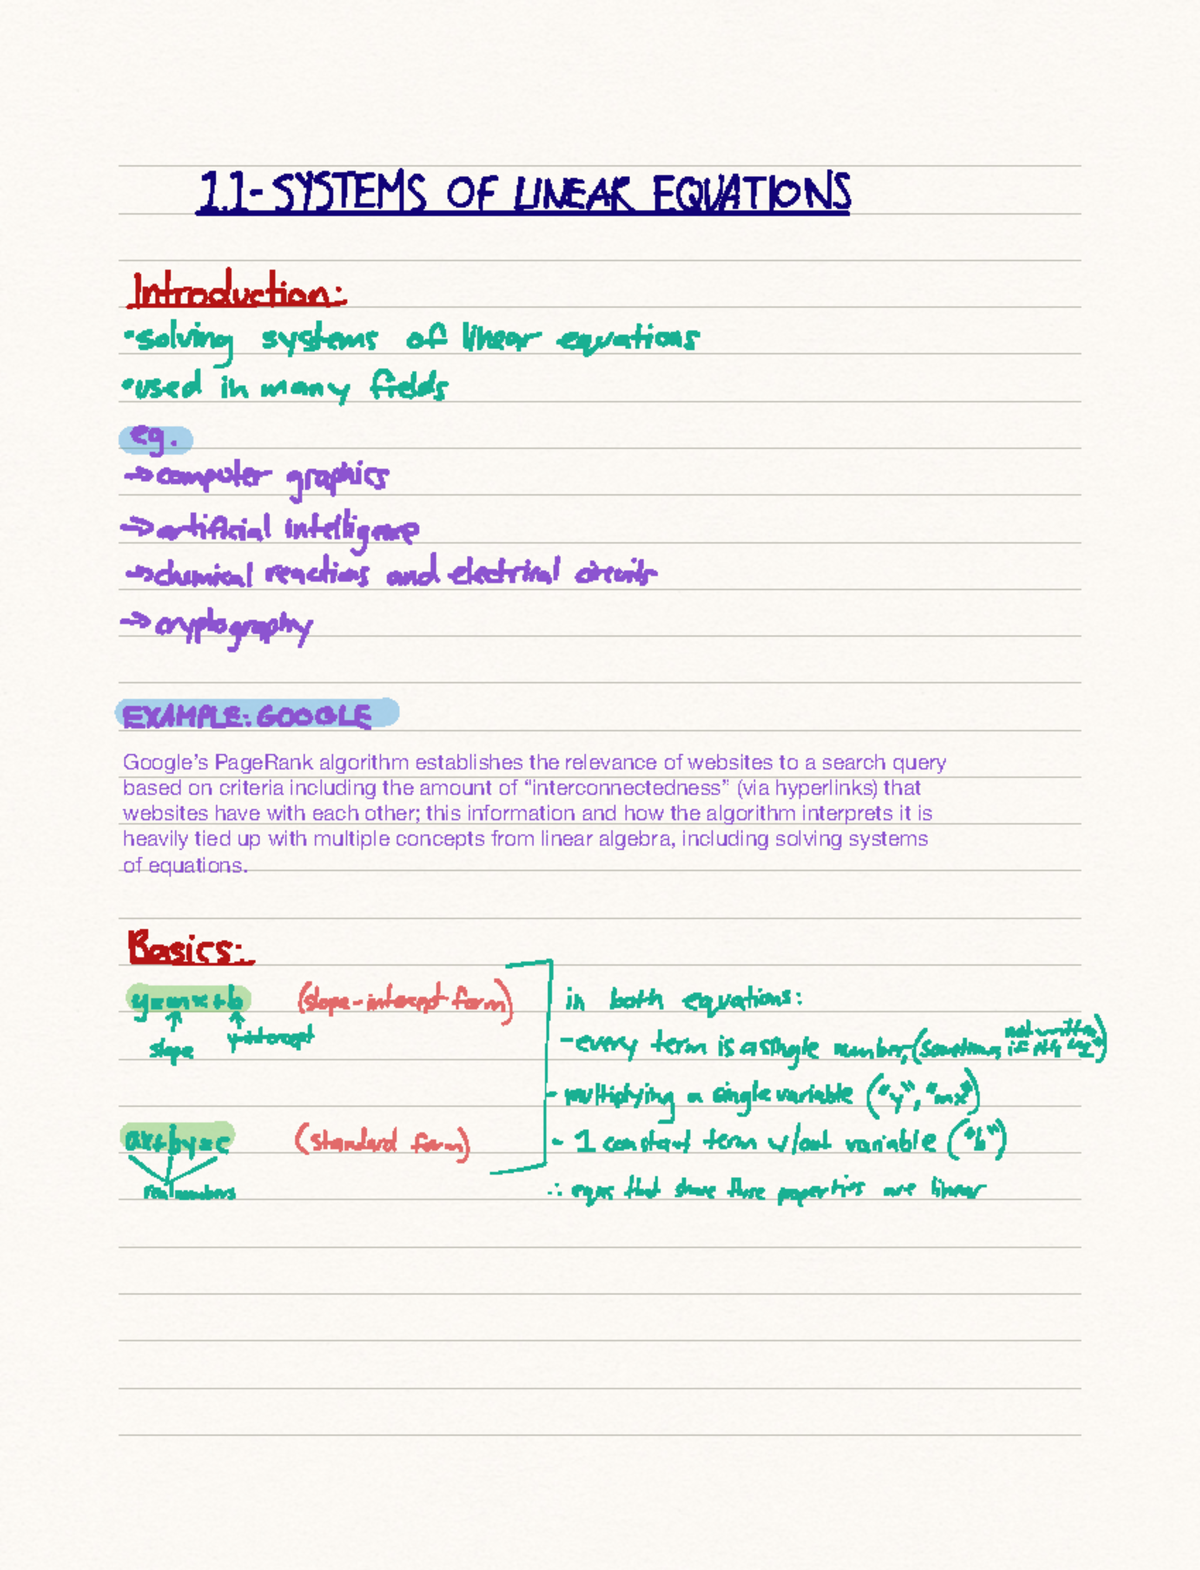 1.1- SYSTEMS OF LINEAR EQUATIONS
Introduction:
•solving systems of linear equations
•used in many fields
eg.
→computer graphics
→artificial intelligence
→chemical reactions and electrical circuits
→cryptography
EXAMPLE: GOOGLE
Google's PageRank algorithm establishes the relevance of websites to a search query
based on criteria including the amount of “interconnectedness” (via hyperlinks) that
websites have with each other; this information and how the algorithm interprets it is
heavily tied up with multiple concepts from linear algebra, including solving systems
of equations.
Basics:
y=mx+b (slope-intercept form)
slope y-intercept
ax+by=c (standard form)
real numbers
in both equations:
-every term is a single number, (sometimes not written if it's
- multiplying a single variable ("y", "mx")
- 1 constant term w/out variable ("b")
∴ eqns that share these properties are linear